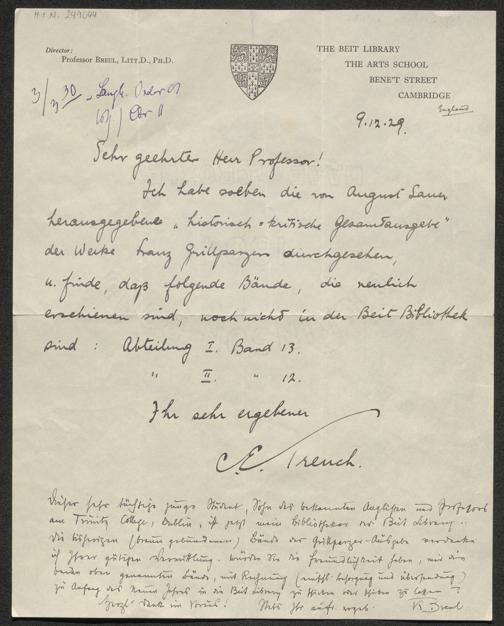 H.I.N. 249044
Director:
Professor Breul, Litt.D., Ph.D.
THE BEIT LIBRARY
THE ARTS SCHOOL
BENE'T STREET
CAMBRIDGE
England
9.12.29.
Sehr geehrter Herr Professor!
Ich habe soeben die von August Sauer
herausgegebene „historisch-kritische Gesamtausgabe"
der Werke Franz Grillparzers durchgesehen,
u. finde, daß folgende Bände, die neulich
erschienen sind, noch nicht in der Beit Bibliothek
sind : Abteilung I. Band 13.
" II. " 12.
Ihr sehr ergebener
C.E. Trench.
Dieser sehr tüchtige junge Student, Sohn des bekannten Anglisten und Professors
am Trinity College, Dublin, ist jetzt mein Bibliothekar der Beit Library.
Die bisherigen (braun gebundenen) Bände der Grillparzer-Ausgabe verdanke
ich Ihrer gütigen Vermittlung. Würden Sie die Freundlichkeit haben, mir die
beiden oben genannten Bände, mit Rechnung
zu Anfang des neuen Jahres in die Beit Library zu
Herzl. Dank im Voraus! Stets Ihr aufr. ergeb. K. Breul